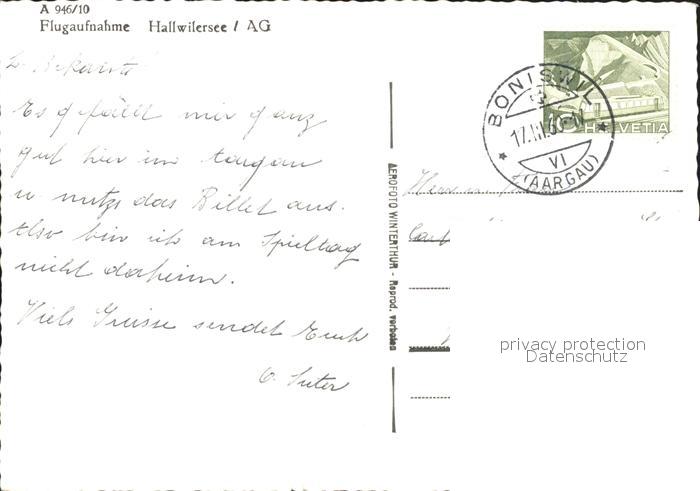 A 946/10
Flugaufnahme Hallwilersee / AG
Es gefällt mir ganz
gut hier im Aargau
u. nutze das Billet aus.
Also bin ich am Spieltag
nicht daheim.
Viele Grüsse sendet Euch
O. Suter
AEROFOTO WINTERTHUR - Reprod. verboten
10 HELVETIA
BONISWIL
17.III.60
VI
(AARGAU)
privacy protection
Datenschutz